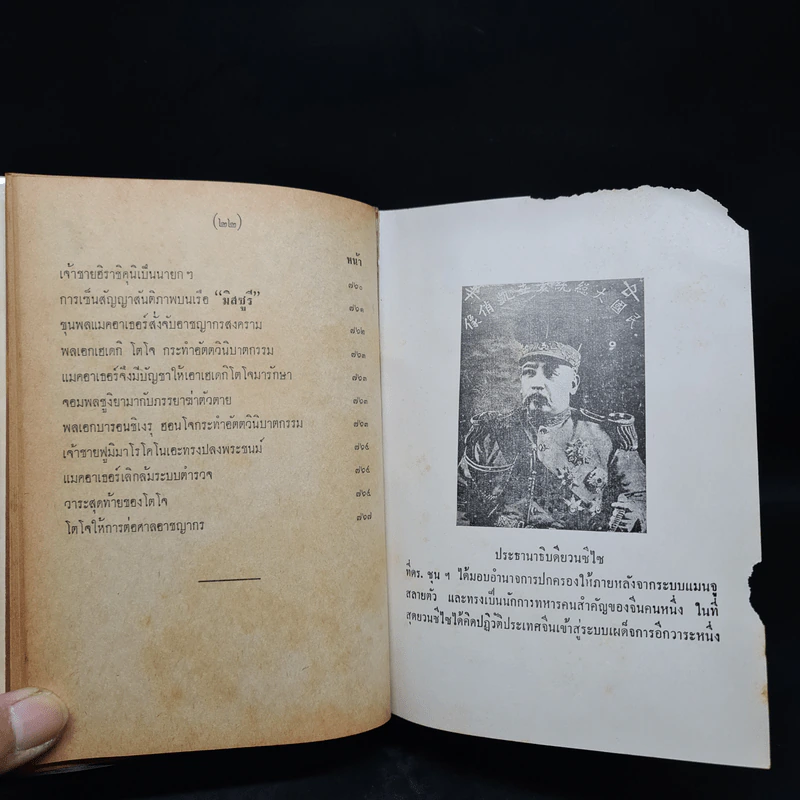 (๒๒)
หน้า
เจ้าชายฮิราชิคุนิเป็นนายก ฯ ๗๖๐
การเซ็นสัญญาสันติภาพบนเรือ “มิสซูรี” ๗๖๑
ขุนพลแมคอาเธอร์สั่งจับอาชญากรสงคราม ๗๖๒
พลเอกเฮเดกิ โตโจ กระทำอัตตวินิบาตกรรม ๗๖๓
แมคอาเธอร์จึงมีบัญชาให้เอาเฮเดกิโตโจมารักษา ๗๖๓
จอมพลซูงิยามากับภรรยาฆ่าตัวตาย ๗๖๓
พลเอกบารอนชิเงรุ ฮอนโจกระทำอัตตวินิบาตกรรม ๗๖๓
เจ้าชายฟูมิมาโรโคโนเอะทรงปลงพระชนม์ ๗๖๔
แมคอาเธอร์เลิกล้มระบบตำรวจ ๗๖๔
วาระสุดท้ายของโตโจ ๗๖๕
โตโจให้การต่อศาลอาชญากร ๗๖๗
ประธานาธิบดียวนซีไซ
ที่ดร. ซุน ฯ ได้มอบอำนาจการปกครองให้ภายหลังจากระบบแมนจู
สลายตัว และทรงเป็นนักการทหารคนสำคัญของจีนคนหนึ่ง ในที่
สุดยวนซีไซได้คิดปฏิวัติประเทศจีนเข้าสู่ระบบเผด็จการอีกวาระหนึ่ง